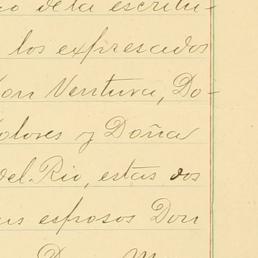 io de la escritu-
los expresados
on Ventura, Do-
olores y Doña
del Rio, estas dos
us esposos Don